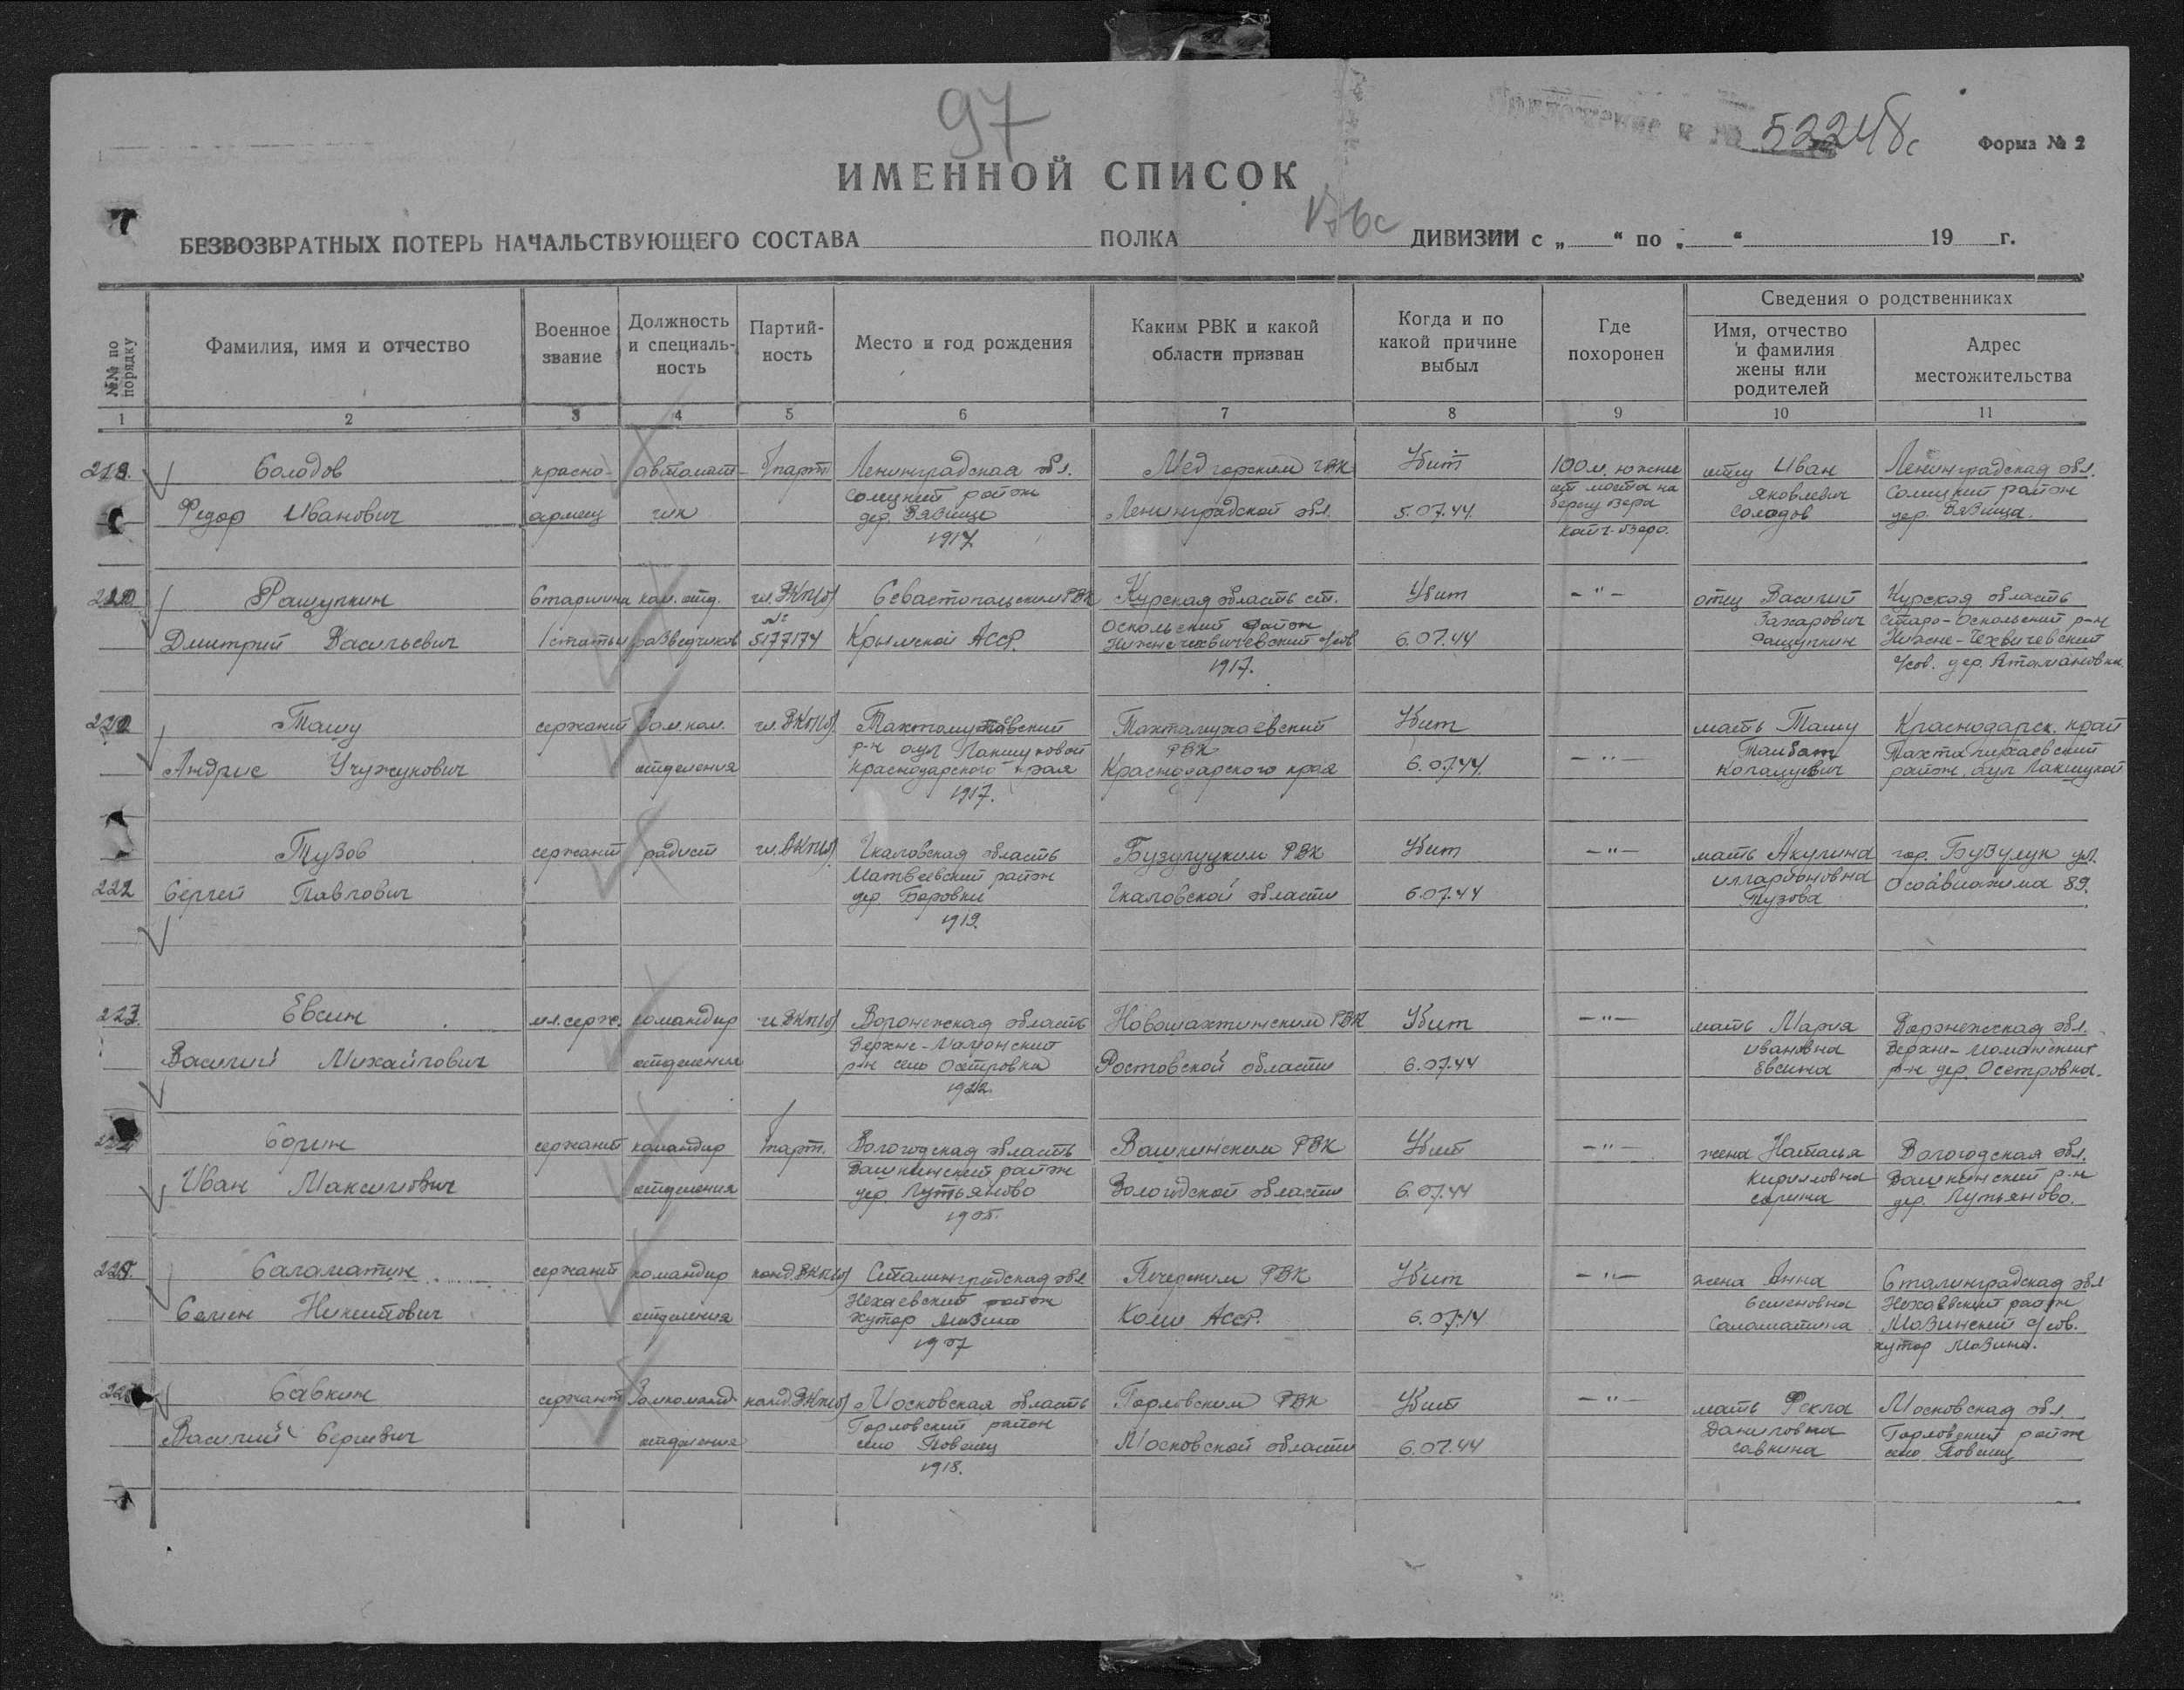 97
52248с
Форма № 2
ИМЕННОЙ СПИСОК
БЕЗВОЗВРАТНЫХ ПОТЕРЬ НАЧАЛЬСТВУЮЩЕГО СОСТАВА ПОЛКА ДИВИЗИИ с „ “ по „ “ 19 г.
№№ по порядку
Фамилия, имя и отчество
Военное звание
Должность и специальность
Партийность
Место и год рождения
Каким РВК и какой области призван
Когда и по какой причине выбыл
Где похоронен
Сведения о родственниках
Имя, отчество и фамилия жены или родителей
Адрес местожительства
1 2 3 4 5 6 7 8 9 10 11
219. Солодов красно- автомат- б/парт Ленинградская обл. Медгорским ГВК Убит 100 м. южнее отец Иван Ленинградская обл.
Солецкий район от моста на Яковлевич Солецкий район
Федор Иванович армеец чик дер. Вязище Ленинградской обл. 5.07.44 берегу озера Солодов дер. Вязища.
1917 озеро.
220 Ращупкин Старшина ком. отд. чл. ВКП(б) Севастопольским РВК Курская область ст. Убит -"- отец Василий Курская область
№ Оскольский район Захарович Старо-Оскольский р-н
Дмитрий Васильевич 1 статьи разведчиков 5177174 Крымской АССР. 6.07.44 Ращупкин
1917. с/сов. дер. Атамановка
Ташу сержант Зам. ком. чл. ВКП(б). Убит мать Ташу Краснодарск. край
р-н аул РВК
Андрие Учужукович отделения Краснодарского края Краснодарского края 6.07.44 -"- район, аул
1917.
Тузов сержант радист чл. ВКП(б) Чкаловская область Бузулуцким РВК Убит -"- мать Акулина гор. Бузулук ул.
Матвеевский район Илларионовна
222 Сергей Павлович дер. Боровки Чкаловской области 6.07.44 Тузова Осоавиахима 89.
1919.
223 Евсин мл. серж. командир чл. ВКП(б) Воронежская область Новошахтинским РВК Убит -"- мать Мария Воронежская обл.
Верхне-Мамонский Ивановна Верхне-Мамонский
Василий Михайлович отделения р-н село Осетровка Ростовской области 6.07.44 Евсина р-н дер. Осетровка.
1922.
224 Сорин сержант командир б/парт. Вологодская область Вашкинским РВК Убит -"- жена Наталья Вологодская обл.
Вашкинский район Кирилловна Вашкинский р-н
Иван Максимович отделения дер. Лутьяново Вологодской области 6.07.44 Сорина дер. Лутьяново.
1905.
225. Саломатин сержант командир канд. ВКП(б) Сталинградская обл. Печерским РВК Убит -"- жена Анна Сталинградская обл
Нехаевский район Семеновна Нехаевский район
Семен Никитович отделения хутор Мазино Коми АССР. 6.07.44 Саломатина Мазинский с/сов.
1907 хутор Мазино.
226 Савкин сержант Замкоманд. канд. ВКП(б) Московская область Горловским РВК Убит -"- мать Фекла Московская обл.
Горловский район Даниловна Горловский район
Василий Сергеевич отделения село Московской области 6.07.44 Савкина село
1918.